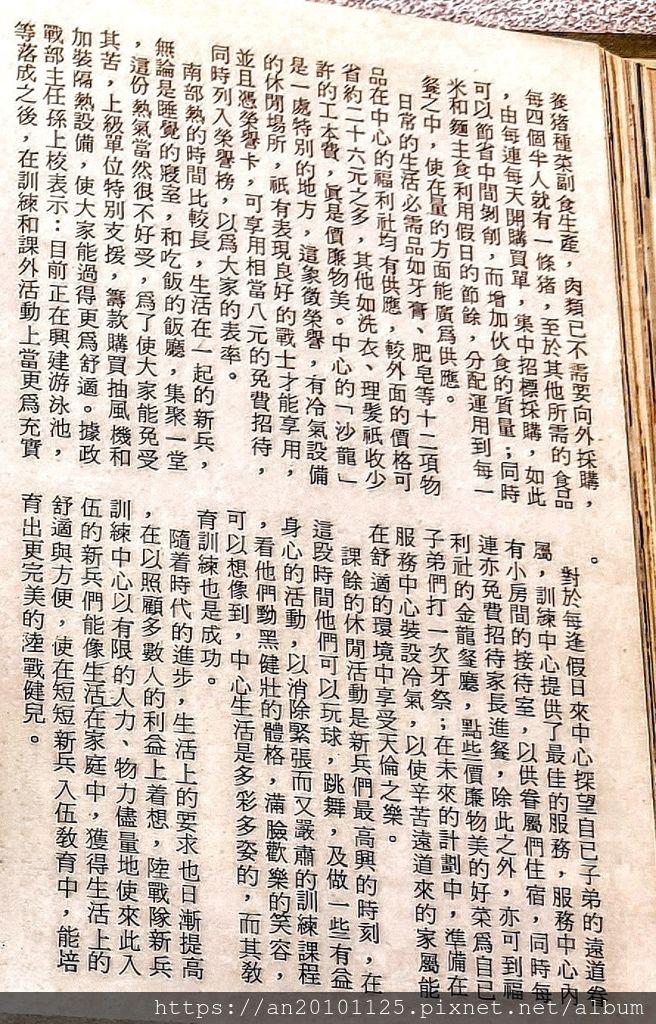 養猪種菜副食生產，肉類已不需要向外採購，
每四個半人就有一條猪，至於其他所需的食品
，由每連每天開購買單，集中招標採購，如此
可以節省中間剝削，而增加伙食的質量；同時
米和麵主食利用假日的節餘，分配運用到每一
餐之中，使在量的方面能廣爲供應。
日常的生活必需品如牙膏、肥皂等十二項物
品在中心的福利社均有供應，較外面的價格可
省約二十六元之多，其他如洗衣、理髮祇收少
許的工本費，眞是價廉物美。中心的「沙龍」
是一處特別的地方，這象徵榮譽，有冷氣設備
的休閒場所，祇有表現良好的戰士才能享用，
並且憑榮譽卡，可享用相當八元的免費招待，
同時列入榮譽榜，以爲大家的表率。
南部熱的時間比較長，生活在一起的新兵，
無論是睡覺的寢室，和吃飯的飯廳，集聚一堂
，這份熱氣當然很不好受，爲了使大家能免受
其苦，上級單位特別支援，籌款購買抽風機和
加裝隔熱設備，使大家能過得更爲舒適。據政
戰部主任孫上校表示：目前正在興建游泳池，
等落成之後，在訓練和課外活動上當更爲充實
。
對於每逢假日來中心探望自己子弟的遠道眷
屬，訓練中心提供了最佳的服務，服務中心內
有小房間的接待室，以供眷屬們住宿，同時每
連亦免費招待家長進餐，除此之外，亦可到福
利社的金龍餐廳，點些價廉物美的好菜爲自己
子弟們打一次牙祭；在未來的計劃中，準備在
服務中心裝設冷氣，以使辛苦遠道來的家屬能
在舒適的環境中享受天倫之樂。
課餘的休閒活動是新兵們最高興的時刻，在
這段時間他們可以玩球，跳舞，及做一些有益
身心的活動，以消除緊張而又嚴肅的訓練課程
，看他們黝黑健壯的體格，滿臉歡樂的笑容，
可以想像到，中心生活是多彩多姿的，而其教
育訓練也是成功。
隨着時代的進步，生活上的要求也日漸提高
，在以照顧多數人的利益上着想，陸戰隊新兵
訓練中心以有限的人力、物力儘量地使來此入
伍的新兵們能像生活在家庭中，獲得生活上的
舒適與方便，使在短短新兵入伍敎育中，能培
育出更完美的陸戰健兒。
https://an20101125.pixnet.net/album